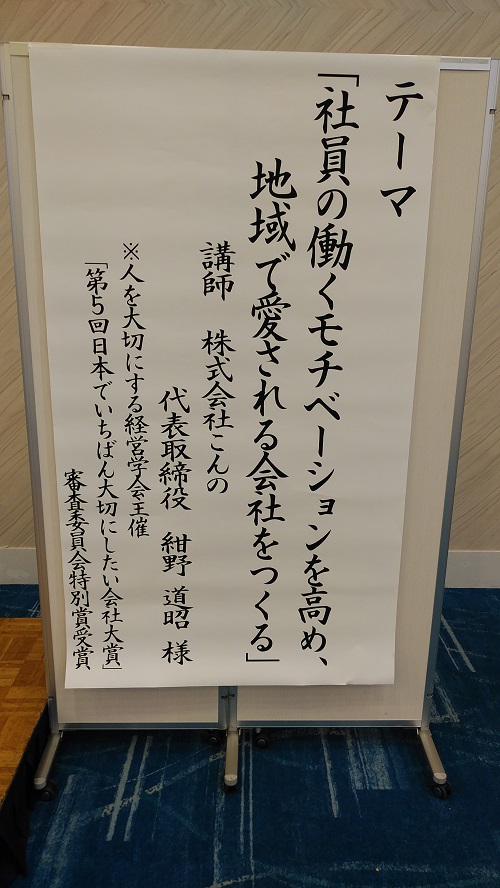 テーマ
「社員の働くモチベーションを高め、
地域で愛される会社をつくる」
講師　株式会社こんの
代表取締役　紺野　道昭　様
※人を大切にする経営学会主催
「第5回日本でいちばん大切にしたい会社大賞」
審査委員会特別賞受賞